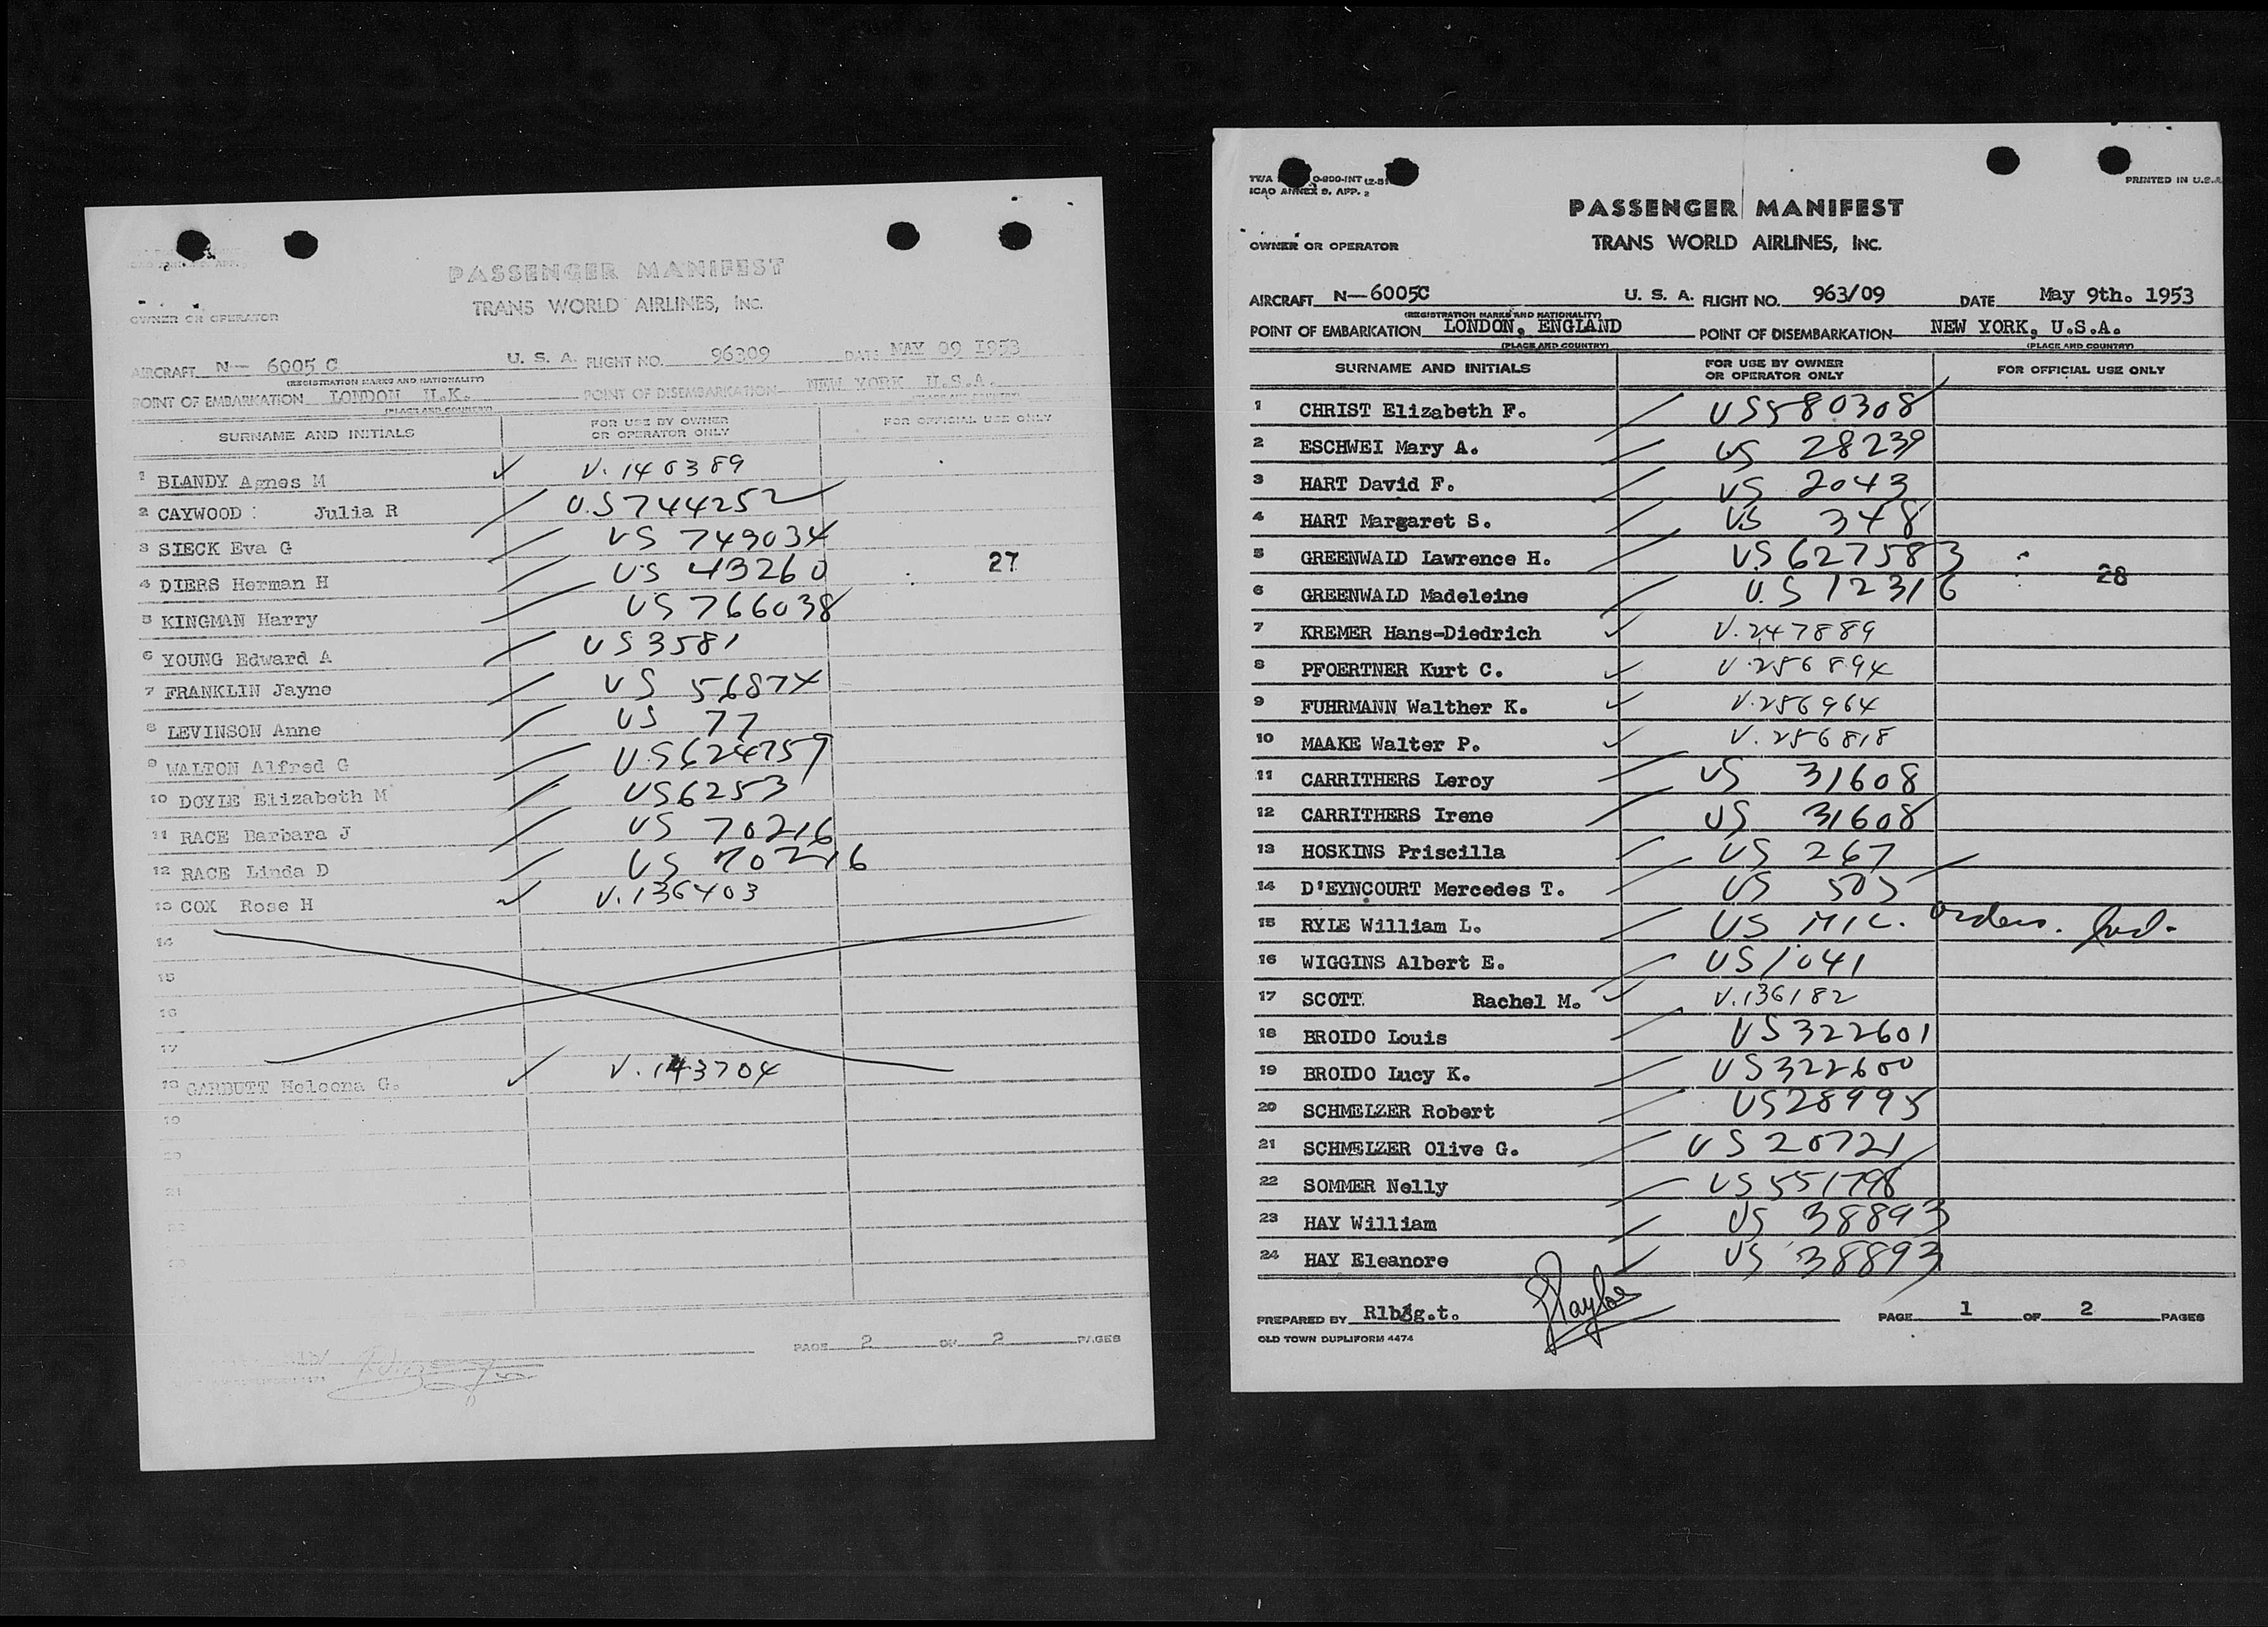 PASSENGER MANIFEST
TRANS WORLD AIRLINES, INC.
OWNER OR OPERATOR
AIRCRAFT N— 6005 C U. S. A. FLIGHT NO. 96309 DATE MAY 09 1953
(REGISTRATION MARKS AND NATIONALITY)
POINT OF EMBARKATION LONDON U.K. POINT OF DISEMBARKATION NEW YORK U.S.A.
(PLACE AND COUNTRY) (PLACE AND COUNTRY)
SURNAME AND INITIALS FOR USE BY OWNER OR OPERATOR ONLY FOR OFFICIAL USE ONLY
1 BLANDY Agnes M V. 140389
2 CAYWOOD : Julia R U.S 744252
3 SIECK Eva G US 749034
4 DIERS Herman H US 43260 27
5 KINGMAN Harry US 766038
6 YOUNG Edward A US 3581
7 FRANKLIN Jayne US 56874
8 LEVINSON Anne US 77
9 WALTON Alfred G U.S 624759
10 DOYLE Elizabeth M US 6253
11 RACE Barbara J US 70216
12 RACE Linda D US 70216
13 COX Rose H V. 136403
14
15
16
17
18 GARBUTT Heleona G. V. 143704
19
20
21
22
23
PAGE 2 OF 2 PAGES
TWA 0-800-INT (2-51)
ICAO ANNEX 9, APP. 2
PRINTED IN U.S.A.
PASSENGER MANIFEST
OWNER OR OPERATOR TRANS WORLD AIRLINES, INC.
AIRCRAFT N—6005C U. S. A. FLIGHT NO. 963/09 DATE May 9th. 1953
(REGISTRATION MARKS AND NATIONALITY)
POINT OF EMBARKATION LONDON, ENGLAND POINT OF DISEMBARKATION NEW YORK, U.S.A.
(PLACE AND COUNTRY) (PLACE AND COUNTRY)
SURNAME AND INITIALS FOR USE BY OWNER OR OPERATOR ONLY FOR OFFICIAL USE ONLY
1 CHRIST Elizabeth F. US 580308
2 ESCHWEI Mary A. US 28239
3 HART David F. US 2043
4 HART Margaret S. US 348
5 GREENWALD Lawrence H. US 627583
6 GREENWALD Madeleine U.S 12316 28
7 KREMER Hans-Diedrich V. 247889
8 PFOERTNER Kurt C. V. 256894
9 FUHRMANN Walther K. V. 256964
10 MAAKE Walter P. V. 256818
11 CARRITHERS Leroy US 31608
12 CARRITHERS Irene US 31608
13 HOSKINS Priscilla US 267
14 D'EYNCOURT Mercedes T. US 505
15 RYLE William L. US MIL. orders.
16 WIGGINS Albert E. US 1041
17 SCOTT Rachel M. V. 136182
18 BROIDO Louis US 322601
19 BROIDO Lucy K. US 322600
20 SCHMELZER Robert US 28995
21 SCHMELZER Olive G. US 20721
22 SOMMER Nelly US 551798
23 HAY William US 38893
24 HAY Eleanore US 38893
PREPARED BY Rlbg.t. Taylor PAGE 1 OF 2 PAGES
OLD TOWN DUPLIFORM 4474